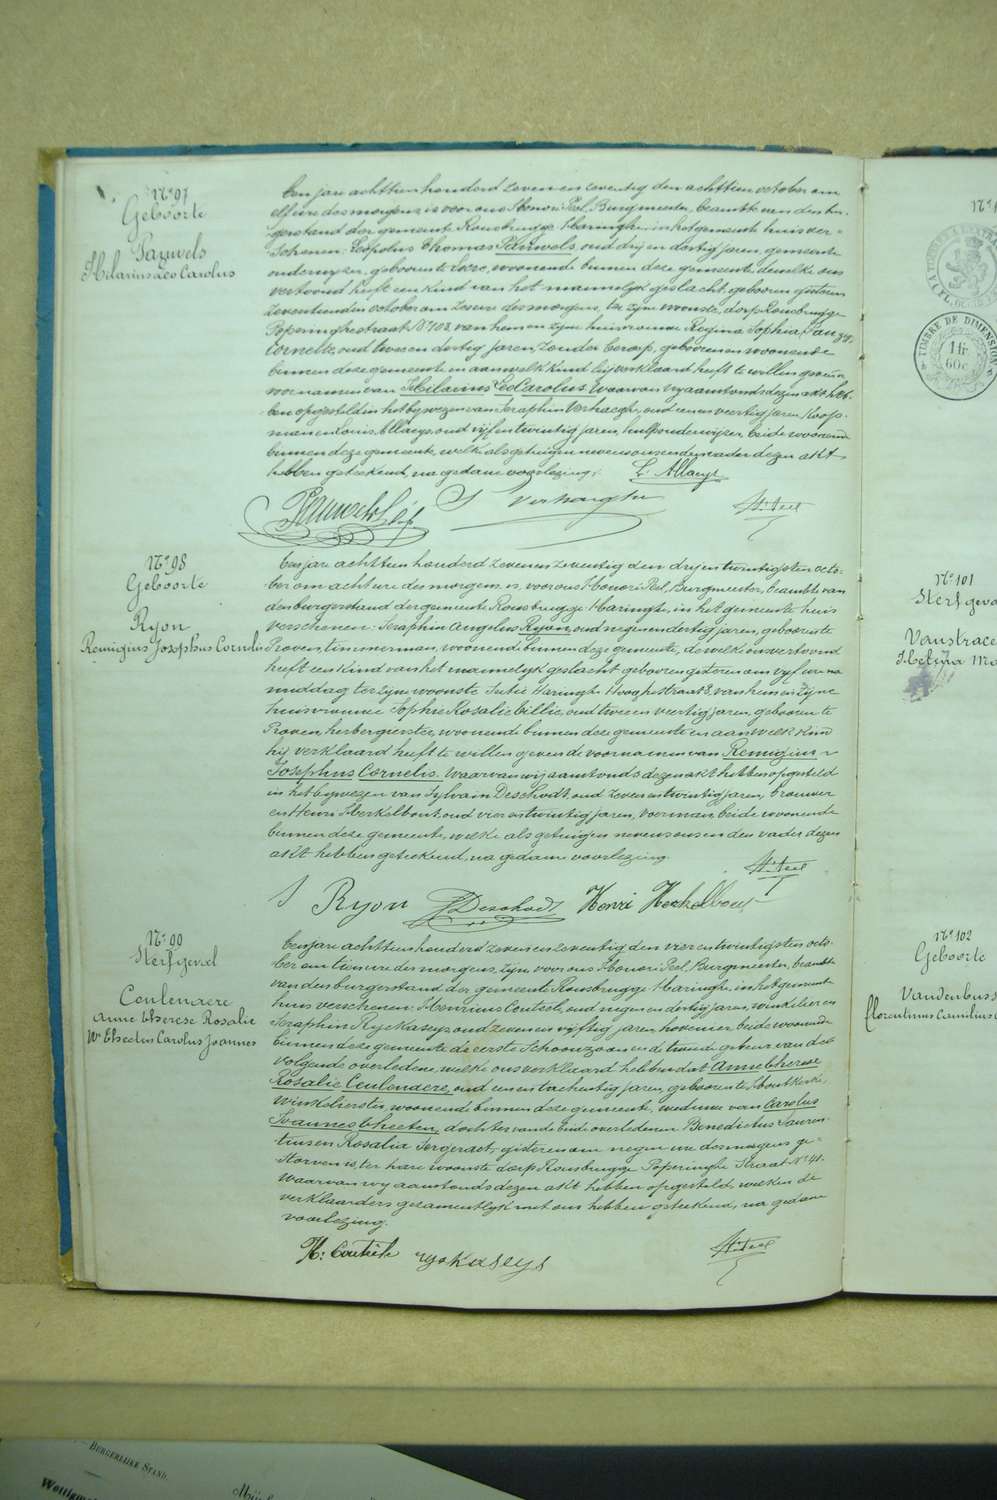 N° 97
Geboorte
Pauwels
Hilarius Leo Carolus
Een jare achttien honderd zeven en zeventig den achttien october om
elf ure des morgens is voor ons Honoré Peel, Burgmeester, beambte van den bur-
gerstand der gemeente Rousbrugge-Haringhe, in het gemeente huis ver-
schenen: Leopolus Thomas Pauwels, oud drij en dertig jaren, gemeente
onderwijzer, geboren te Locre, woonende binnen deze gemeente dewelke ons
vertoond heeft een kind van het mannelijk geslacht, geboren gisteren
zeventienden october om zes ure des morgens, ter zijne woonste, dorp Rousbrugge
Poperinghestraat N° 102 van hem en zijne huisvrouwe Regina Sophia
Cornette, oud twee en dertig jaren, zonder beroep, geboren en woonende
binnen deze gemeente en aan welk kind hij verklaard heeft te willen geven de
voornamen van Hilarius Leo Carolus. Waarvan wij aanstonds dezen akt heb-
ben opgesteld in het bijwezen van Seraphin Verhaeghe, oud een en veertig jaren, koop-
man en Louis Allaeys, oud vijf en twintig jaren, hulponderwijzer, beide woonende
binnen deze gemeente, welk als getuigen nevens ons en den vader dezen akt
hebben geteekend, na gedane voorlezing.
L. Allaeys
Pauwels Lép
S Verhaeghe
H. Peel
N° 98
Geboorte
Ryon
Remigius Josephus Cornelis
Een jare achttien honderd zeven en zeventig den drij en twintigsten octo-
ber om acht ure des morgens, is voor ons Honoré Peel, Burgmeester, beambte van
den burgerstand der gemeente Rousbrugge-Haringhe, in het gemeente huis
verschenen: Seraphin Angelus Ryon, oud negen en dertig jaren, geboren te
Proven, timmerman, woonende binnen deze gemeente, dewelke ons vertoond
heeft een kind van het mannelijk geslacht geboren gisteren om vijf ure na
middag ter zijne woonste Haringhe Hooghestraat 3, van hem en zijne
huisvrouwe Sophie Rosalie Lillie, oud twee en veertig jaren, geboren te
Proven, herbergierster, woonende binnen deze gemeente en aan welk kind
hij verklaard heeft te willen geven de voornamen van Remigius
Josephus Cornelis. Waarvan wij aanstonds dezen akt hebben opgesteld
in het bijwezen van Sylvain Deschodt, oud zeven en twintig jaren, brouwer
en Henri Herkelbout, oud vier en twintig jaren, voerman, beide woonende
binnen deze gemeente, welke als getuigen nevens ons en den vader dezen
akt hebben geteekend, na gedane voorlezing.
H. Peel
S Ryon
Deschodt
Henri Herkelbout
N° 99
Sterfgeval
Ceulenaere
Anne Therese Rosalie
We Theeten Carolus Joannes
Een jare achttien honderd zeven en zeventig den vier en twintigsten octo-
ber om tien ure des morgens, zijn voor ons Honoré Peel, Burgmeester, beambte
van den burgerstand der gemeente Rousbrugge-Haringhe, in het gemeente
huis verschenen: Henricus Coutsele, oud negen en dertig jaren, winkelier en
Seraphin Ryckaseys, oud zeven en vijftig jaren, hovenier, beide woonende
binnen deze gemeente de eerste Schoonzoon en de tweede gebuur van de
volgende overledene, welke ons verklaard hebben dat Anne Therese
Rosalie Ceulenaere, oud een en tachentig jaren, geboren te Houtkerke,
winkelierster, woonende binnen deze gemeente, weduwe van Carolus
Joannes Theeten, dochter van de beide overledenen Benedictus Lauren-
tius en Rosalia Sergeraet, gisteren om negen ure des morgens ge-
storven is, ter hare woonste dorp Rousbrugge Poperinghe Straat N° 41.
Waarvan wij aanstonds dezen akt hebben opgesteld, welken de
verklaarders gezamentlijk met ons hebben geteekend, na gedane
voorlezing.
H. Peel
ryckaseys
N° 101
N° 102
Geboorte
TIMBRE DE DIMENSION
1 fr
60 c
BURGERLIJKE STAND.